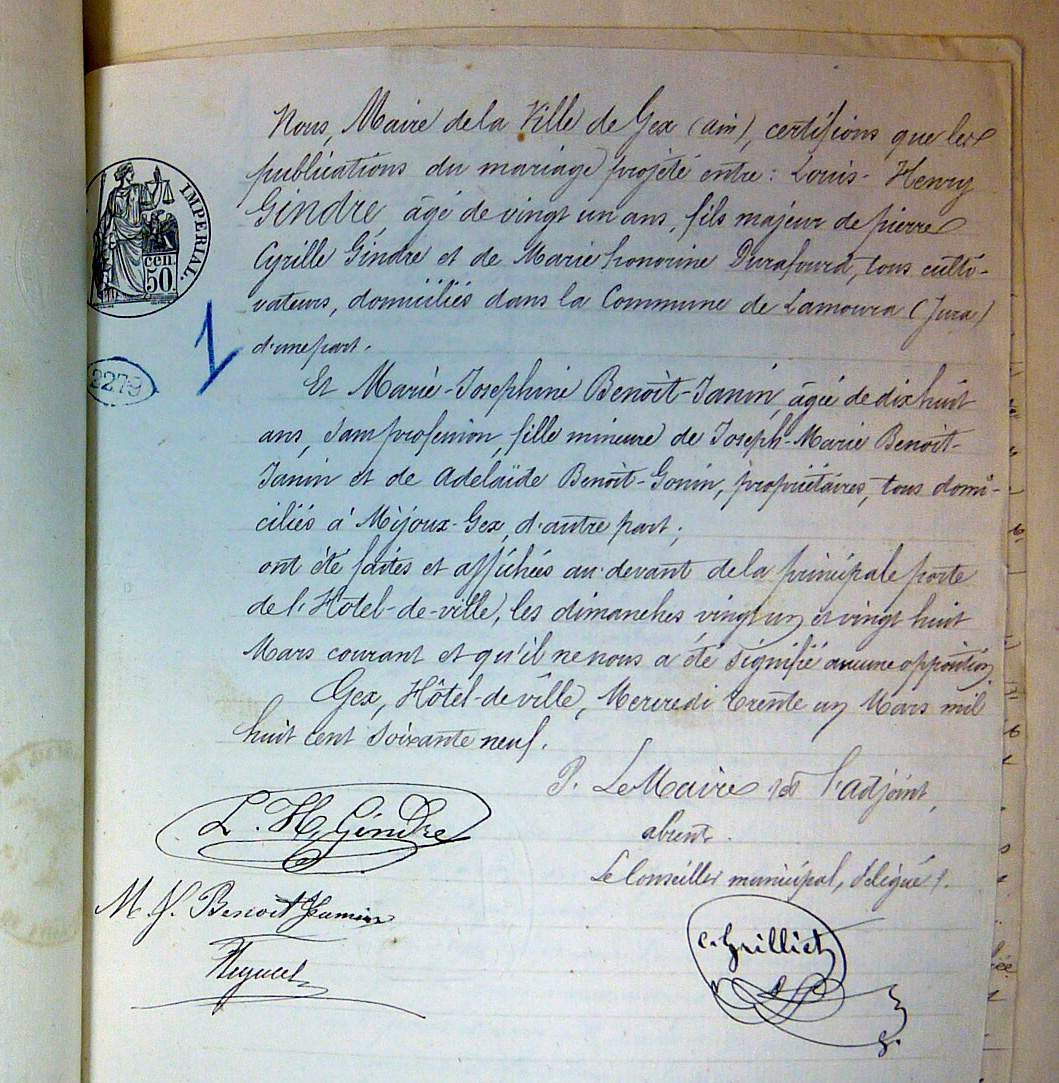 IMPERIAL.
cen.
50.
1
2279
Nous, Maire de la Ville de Gex (ain), certifions que les
publications du mariage projété entre : Louis-Henry
Gindre, âgé de vingt un ans, fils majeur de pierre
Cyrille Gindre et de Marie honorine Durafourd, tous culti-
vateurs, domiciliés dans la Commune de Lamoura (Jura)
d'une part.
Et Marie-Josephine Benoît-Janin, âgée de dix huit
ans, sans profession, fille mineure de Joseph-Marie Benoit-
Janin et de Adelaïde Benoît-Gonin, propriétaires, tous domi-
ciliés à Mijoux-Gex, d'autre part ;
ont été faites et affichées au devant de la principale porte
de l'Hôtel-de-ville, les dimanches vingt un et vingt huit
Mars courant et qu'il ne nous a été signifié aucune opposition.
Gex, Hôtel-de ville, Mercredi trente un Mars mil
huit cent soixante neuf.
P. Le Maire et l'adjoint,
absents.
Le Conseiller municipal, délégué.
L. H. Gindre
M. J. Benoit Jeannin
C. Grilliet